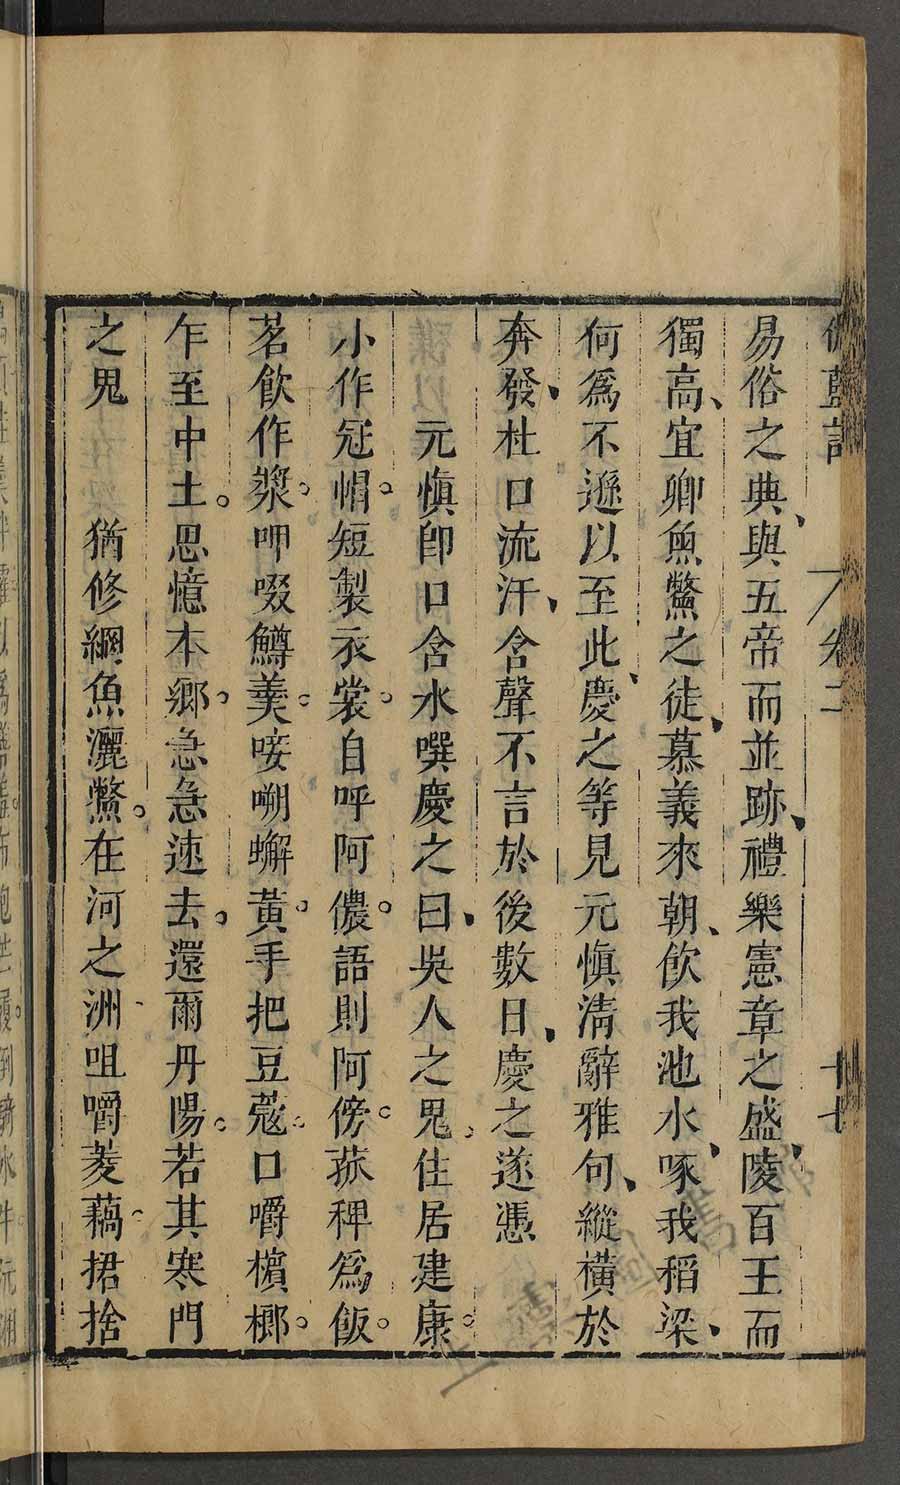 伽藍記 卷二 十七
易俗之典與五帝而並跡禮樂憲章之盛陵百王而
獨高宜卿魚鱉之徒慕義來朝飲我池水啄我稻梁
何爲不遜以至此慶之等見元愼清辭雅句縱橫於
奔發杜口流汗含聲不言於後數日慶之遂憑
元愼卽口含水噀慶之曰吳人之鬼住居建康
小作冠帽短製衣裳自呼阿儂語則阿傍菰稗爲飯
茗飲作漿呷啜鱒羹唼嗍蠏黃手把豆蔻口嚼檳榔
乍至中土思憶本鄉急急速去還爾丹陽若其寒門
之鬼 猶修網魚漉鱉在河之洲咀嚼菱藕捃捨